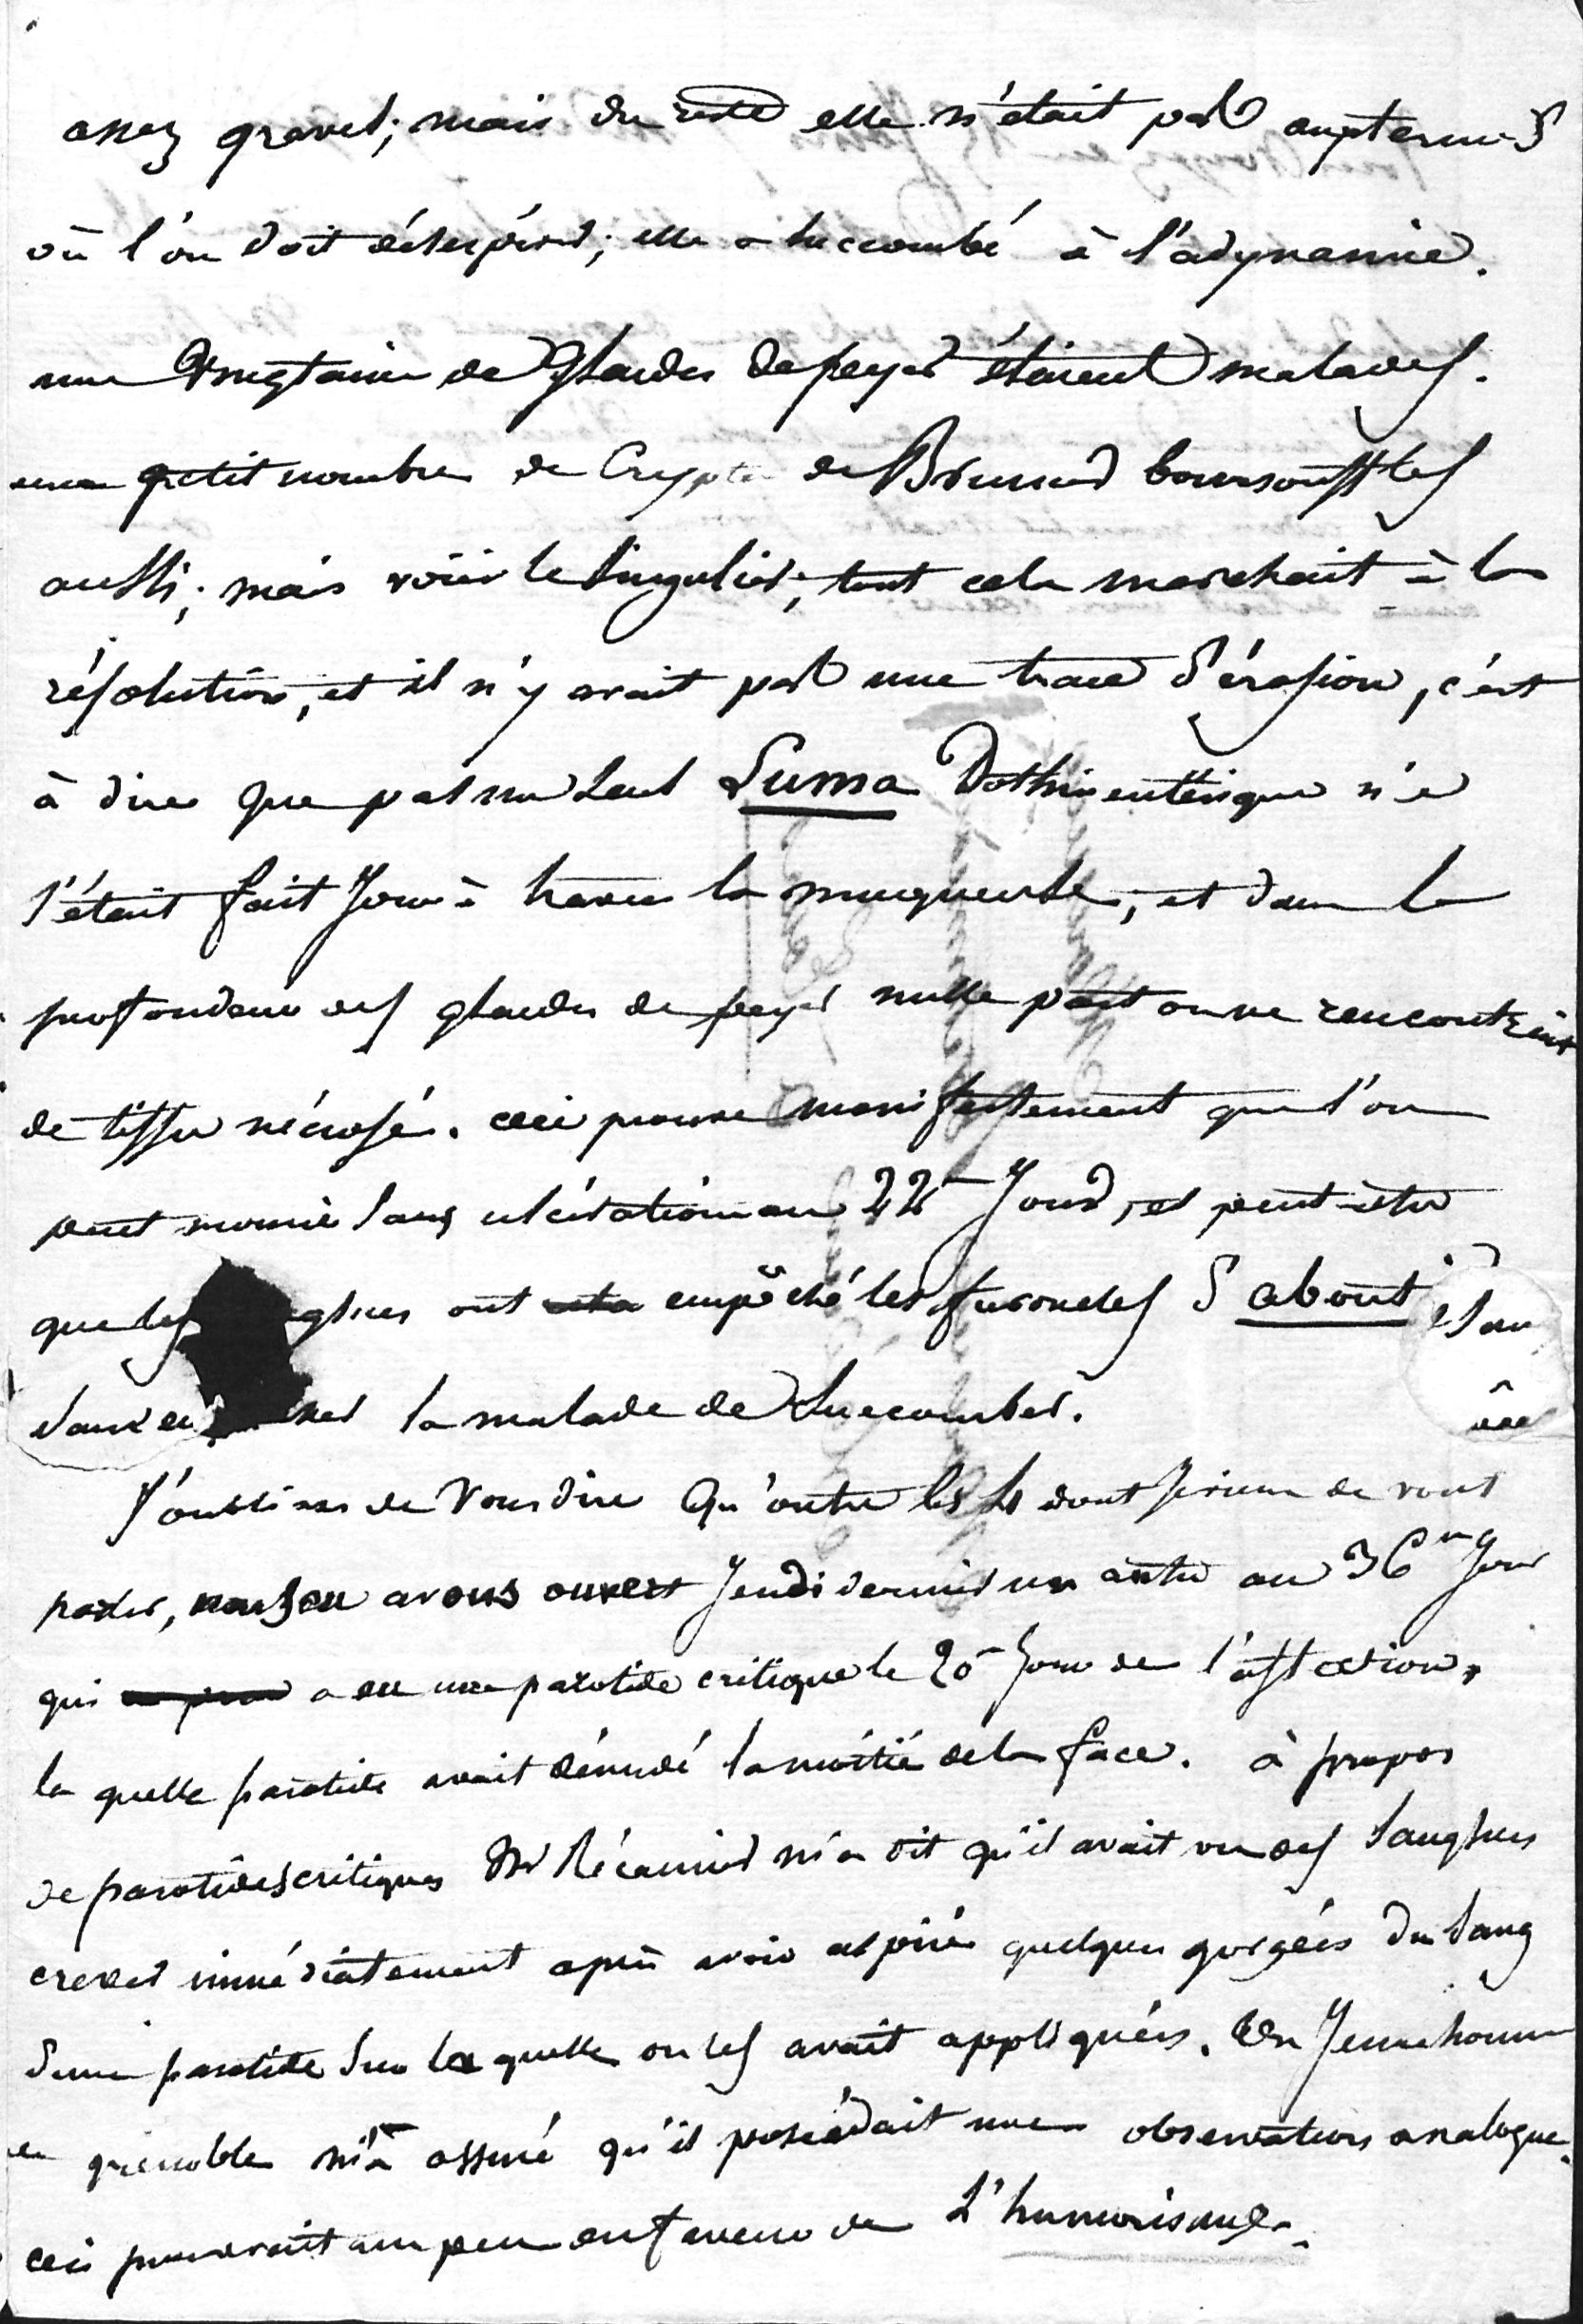 assez graves; mais du reste elle n'était pas aux termes
où l'on doit désespérer; elle a succombé à l'adynamie.
une vingtaine de glandes de peyer étaient malades.
un petit nombre de Cryptes de Brunner boursoufflés
aussi; mais voici le singulier; tout cela marchait à la
résolution, et il n'y avait pas une trace d'érosion, c'est
à dire que pas un seul Puma Dothinentérique n'
s'était fait Jour à travers la muqueuse, et dans la
profondeur des glandes de peyer nulle part on ne rencontrait
de tissu nécrosé. ceci prouve manifestement que l'on
peut mourir sans ulcération au 22e Jour, et peut-être
que les gsues ont empêché les furoncles d'about sau
sans la malade de succomber.
J'oubliais de Vous dire Qu'outre les dont je viens de vous
parler, nous en avons ouvert Jeudi dernier un autre au 36me Jour
qui a eu une parotide critique le 20e Jour de l'affection,
la quelle parotide avait dénudé la moitié de la face. à propos
de parotides critiques Mr Récamier m'a dit qu'il avait vu des sangsues
crever immédiatement après avoir aspiré quelques gorgées du sang
d'une parotide sur la quelle on les avait appliquées. Un Jeune homme
de grenoble m'a assuré qu'il possédait une observation analogue.
ceci prouverait un peu en faveur de L'humorisme.